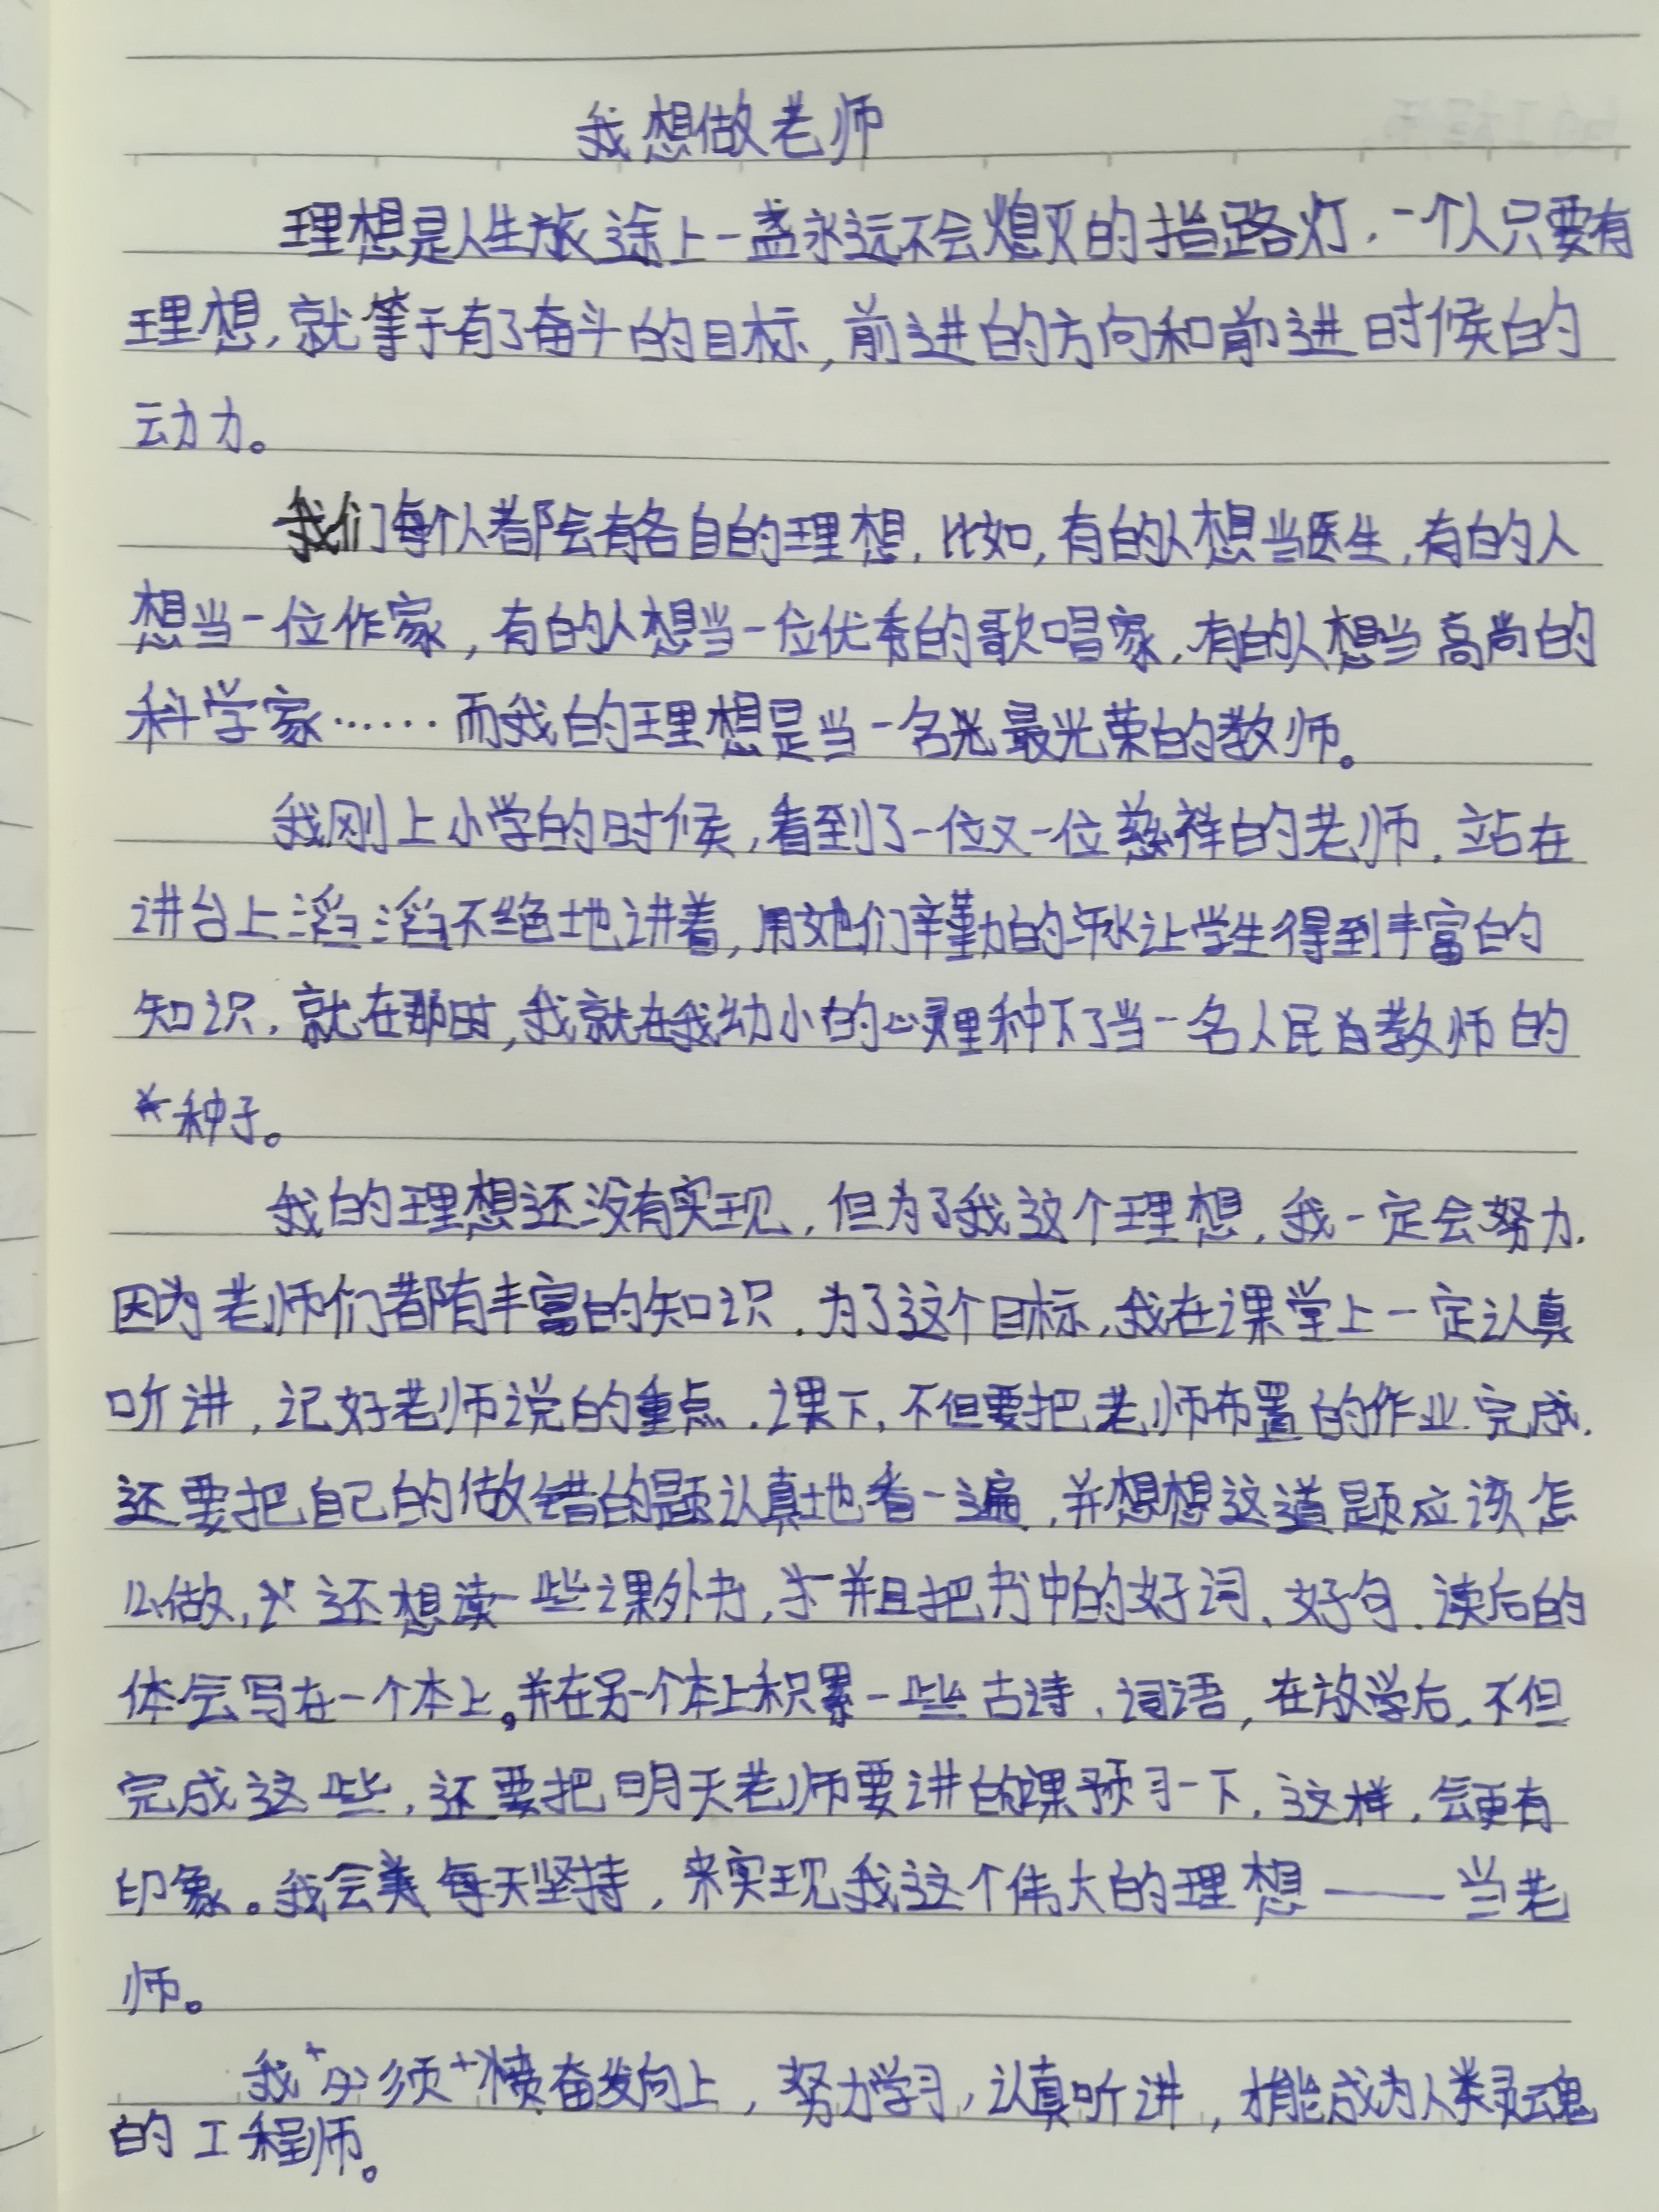 我想做老师
理想是人生旅途上一盏永远不会熄灭的指路灯，一个人只要有
理想，就等于有了奋斗的目标，前进的方向和前进时候的
动力。
我们每个人都会有各自的理想，比如，有的人想当医生，有的人
想当一位作家，有的人想当一位优秀的歌唱家，有的人想当高尚的
科学家……而我的理想是当一名最光荣的教师。
我刚上小学的时候，看到了一位又一位慈祥的老师，站在
讲台上滔滔不绝地讲着，用她们辛勤的汗水让学生得到丰富的
知识，就在那时，我就在我幼小的心灵里种下了当一名人民教师的
种子。
我的理想还没有实现，但为了我这个理想，我一定会努力.
因为老师们都有丰富的知识，为了这个目标，我在课堂上一定认真
听讲，记好老师说的重点，课下，不但要把老师布置的作业完成，
还要把自己的做错的题认真地看一遍，并想想这道题应该怎
么做，还想读一些课外书，并且把书中的好词、好句、读后的
体会写在一个本上。并在另一个本上积累一些古诗、词语，在放学后，不但
完成这些，还要把明天老师要讲的课预习一下，这样，会更有
印象。我会每天坚持，来实现我这个伟大的理想——当老
师。
我必须奋发向上，努力学习，认真听讲，才能成为人类灵魂
的工程师。